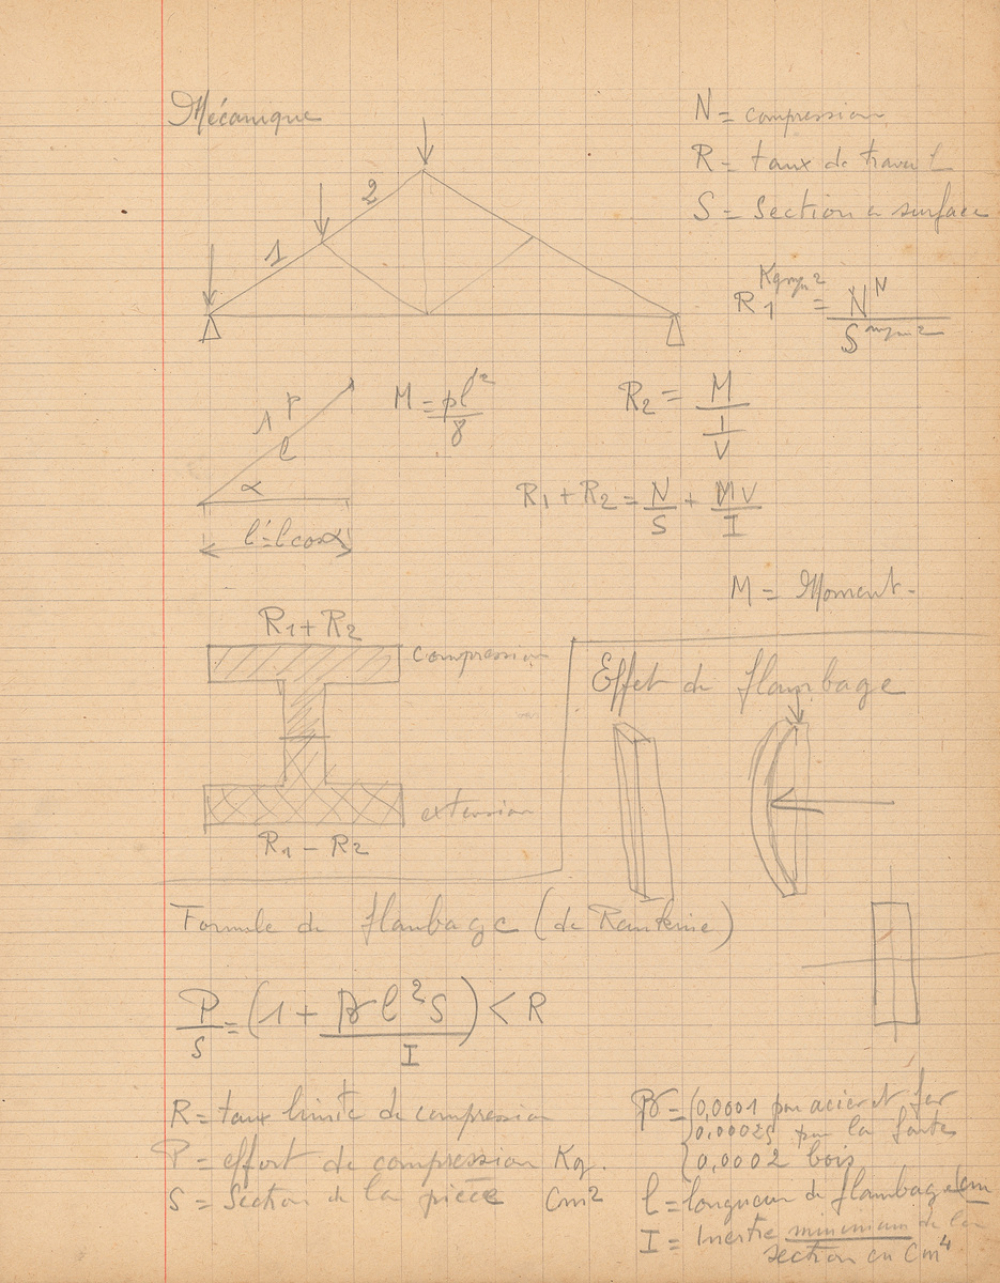 Mécanique
N = compression
R = taux de travail
S = Section a surface
2
1
R₁ Kgmm² = N N / S mm²
1 P
l
α
l' = l cos α
M = pl² / 8
R₂ = M / (I / V)
R₁ + R₂ = N / S + MV / I
M = Moment.
R₁ + R₂
compression
extension
R₁ - R₂
Effet de flambage
Formule de flambage (de Rankine)
P / S = (1 + l²S / I) < R
R = taux limite de compression
P = effort de compression Kg.
S = Section de la pièce Cm²
= { 0,0001 pour acier et fer
0,00025 pour la fonte
0,0002 bois
l = longueur de flambage Cm
I = Inertie minimum de la
section en Cm⁴